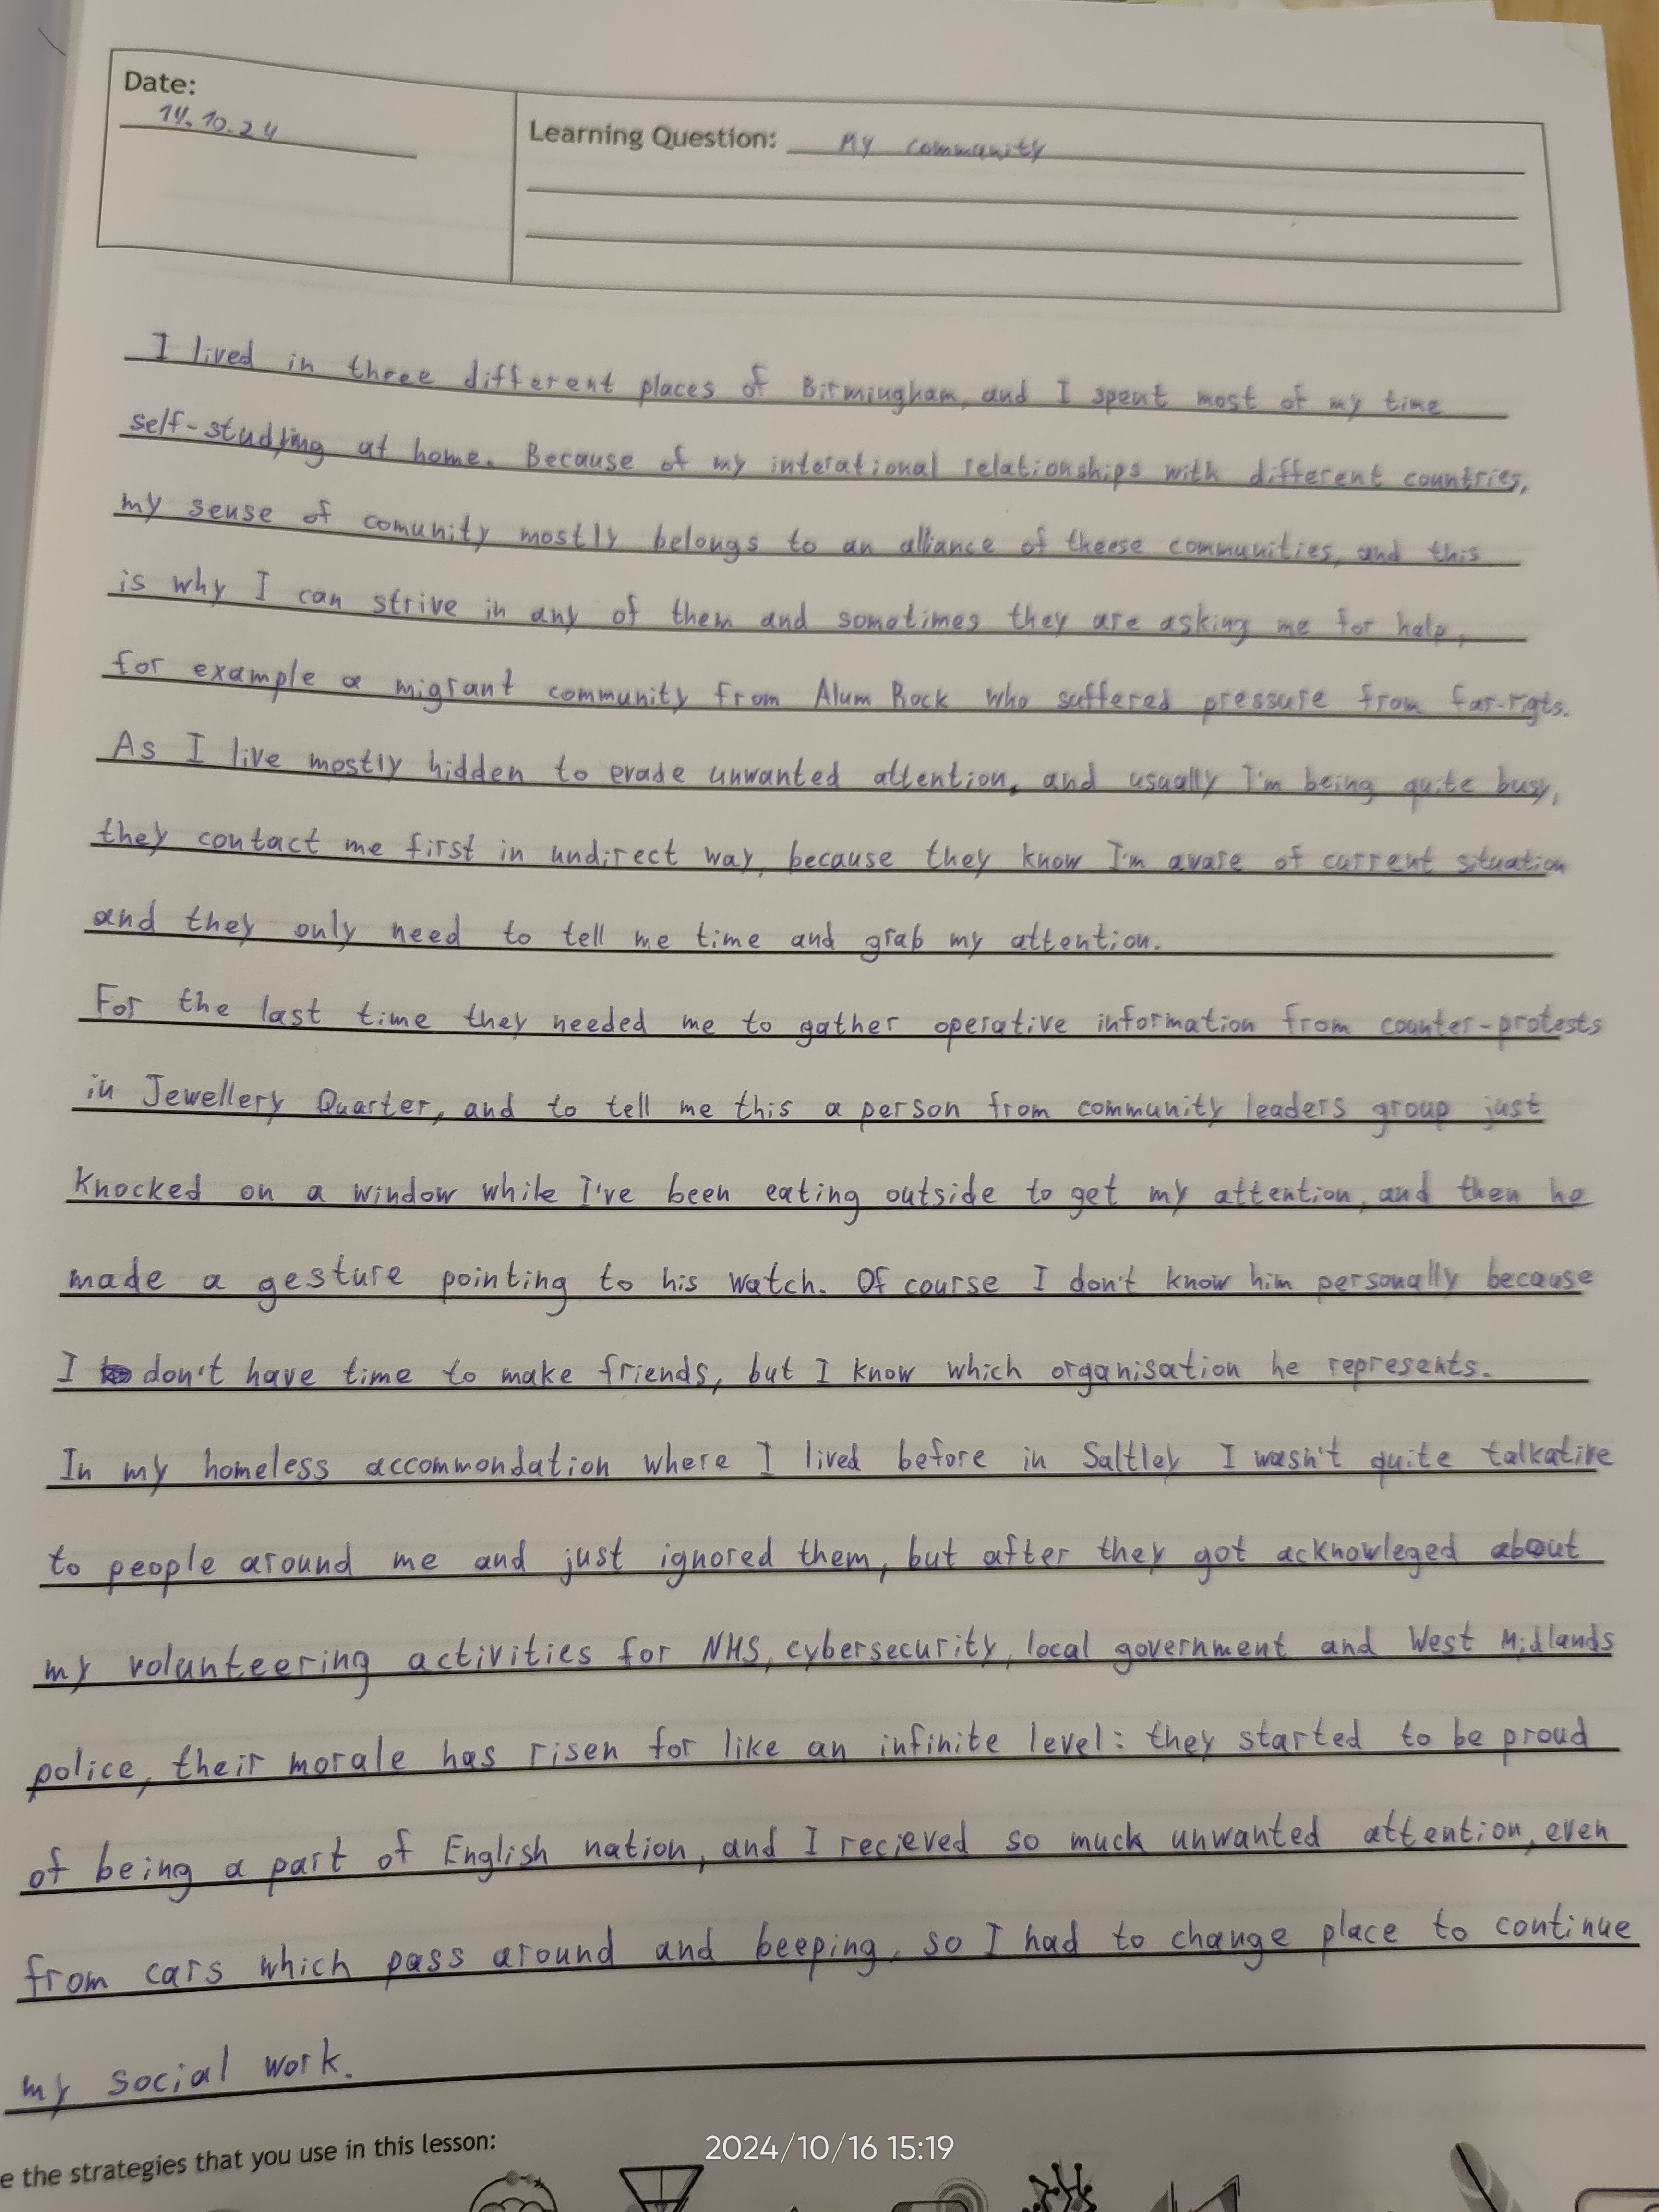 Date:
14.10.24
Learning Question: My community
I lived in three different places of Birmingham, and I spent most of my time
self-studying at home. Because of my interational relationships with different countries,
my sense of comunity mostly belongs to an alliance of theese communities, and this
is why I can strive in any of them and sometimes they are asking me for help,
for example a migrant community from Alum Rock who suffered pressure from far-rigts.
As I live mostly hidden to evade unwanted attention, and usually I'm being quite busy,
they contact me first in undirect way, because they know I'm aware of current situation
and they only need to tell me time and grab my attention.
For the last time they needed me to gather operative information from counter-protests
in Jewellery Quarter, and to tell me this a person from community leaders group just
knocked on a window while I've been eating outside to get my attention, and then he
made a gesture pointing to his watch. Of course I don't know him personally because
I don't have time to make friends, but I know which organisation he represents.
In my homeless accommondation where I lived before in Saltley I wasn't quite talkative
to people around me and just ignored them, but after they got acknowleged about
my volunteering activities for NHS, cybersecurity, local government and West Midlands
police, their morale has risen for like an infinite level: they started to be proud
of being a part of English nation, and I recieved so much unwanted attention, even
from cars which pass around and beeping, so I had to change place to continue
my social work.
e the strategies that you use in this lesson:
2024/10/16 15:19